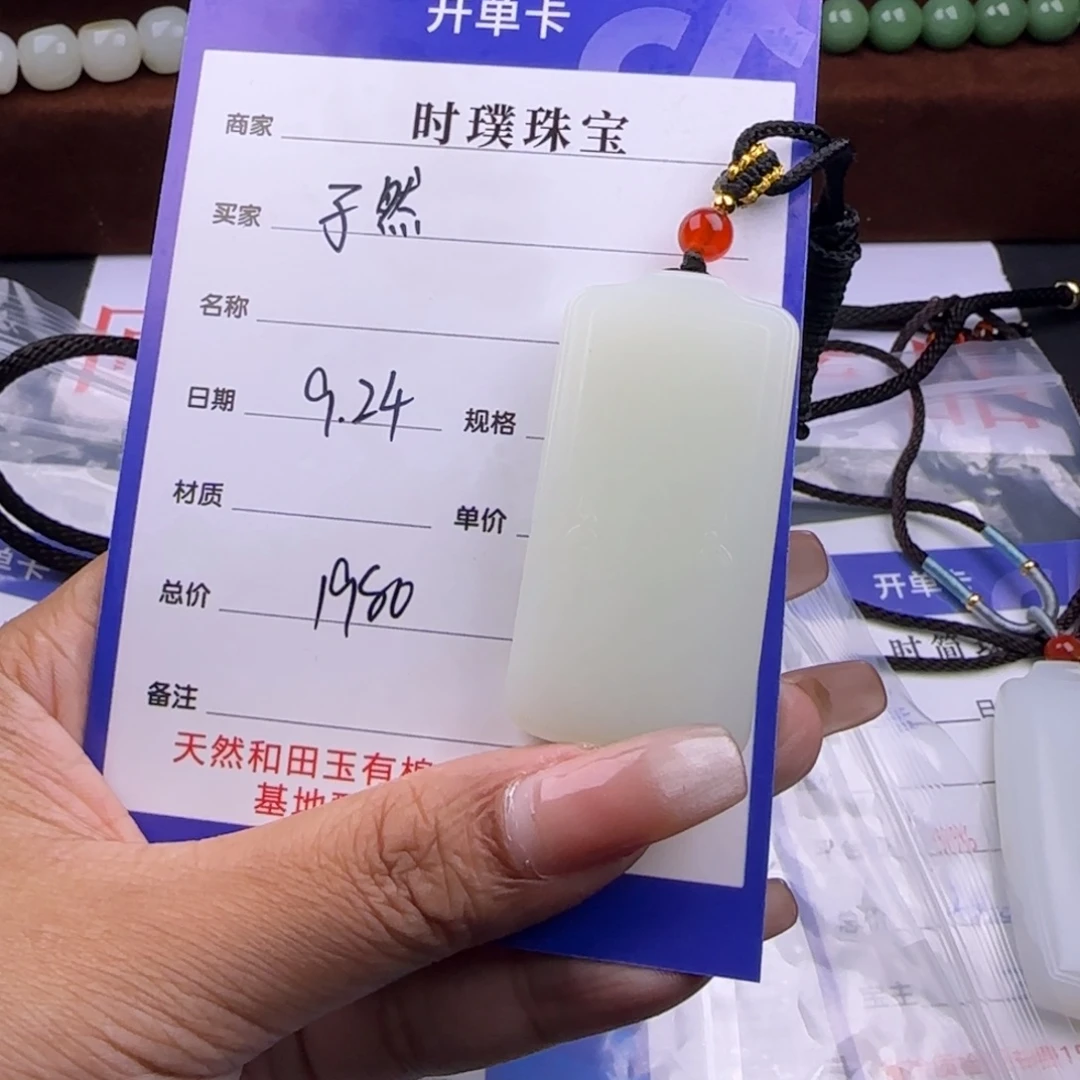 开单卡
商家 时璞珠宝
买家 子然
名称
日期 9.24 规格
材质 单价
总价 1980
备注
天然和田玉有棉
基地
单卡
开单卡
时简
日